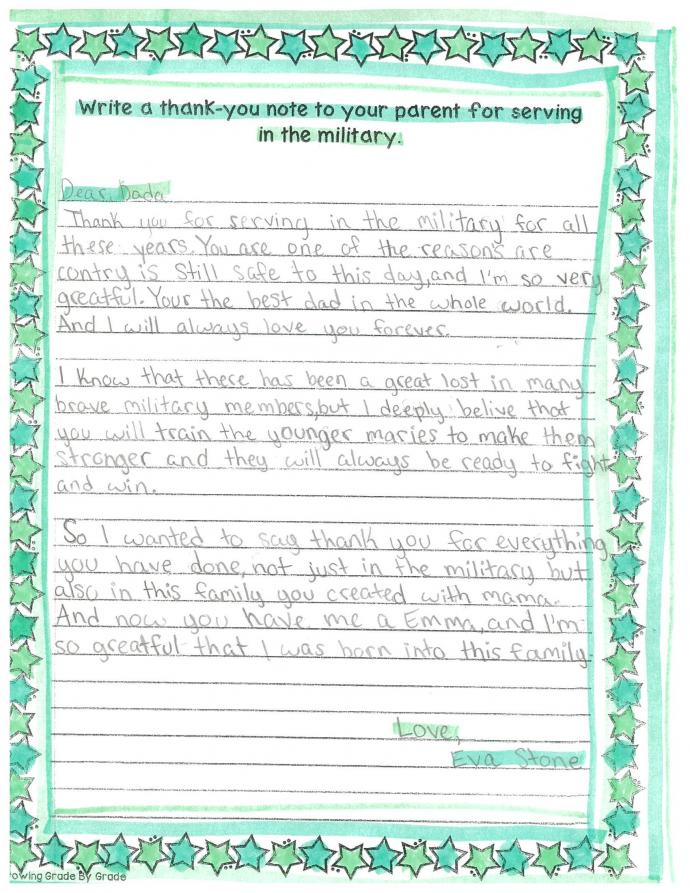 Write a thank-you note to your parent for serving
in the military.
Dear Dada
Thank you for serving in the military for all
these years. You are one of the reasons are
contry is Still safe to this day, and I'm so very
greatful. Your the best dad in the whole world.
And I will always love you forever.
I know that there has been a great lost in many
brave military members, but I deeply belive that
you will train the younger maries to make them
stronger and they will always be ready to fight
and win.
So I wanted to say thank you for everything
you have done, not just in the military but
also in this family you created with mama.
And now you have me a Emma, and I'm
so greatful that I was born into this family.
Love,
Eva Stone
rowing Grade By Grade